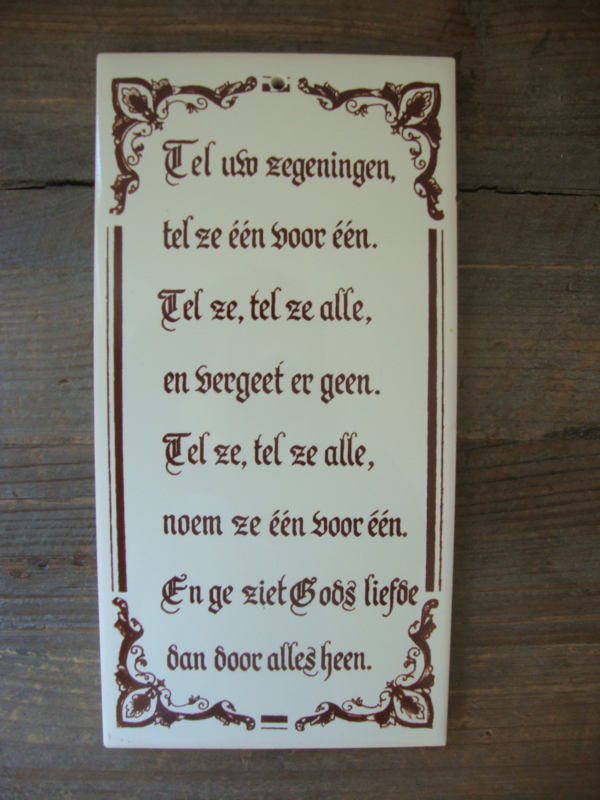 Tel uw zegeningen,
tel ze één voor één.
Tel ze, tel ze alle,
en vergeet er geen.
Tel ze, tel ze alle,
noem ze één voor één.
En ge ziet Gods liefde
dan door alles heen.